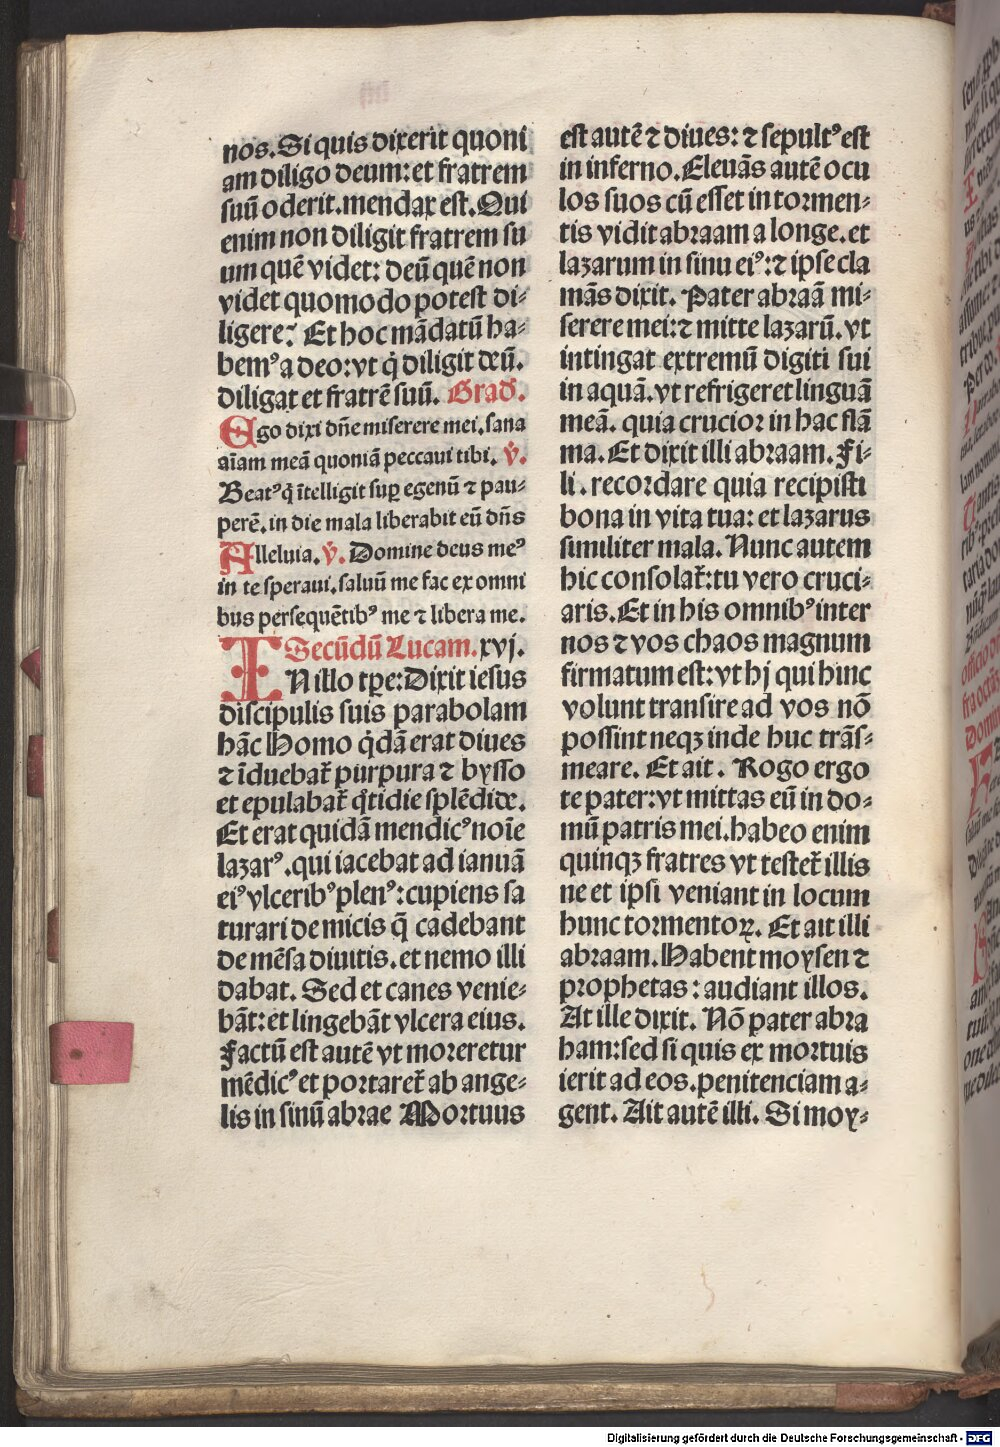 nos. Si quis dixerit quoni
am diligo deum: et fratrem
suū oderit. mendax est. Qui
enim non diligit fratrem su
um quē videt: deū quē non
videt quomodo potest di⸗
ligere? Et hoc mādatū ha⸗
bemꝰ a deo: vt q̇ diligit deū.
diligat et fratrē suū. Grad̄.
Ego dixi dn̄e miserere mei. sana
aīam meā quoniā peccaui tibi. v̄.
Beatꝰ q̇ ītelligit suꝑ egenū ⁊ pau⸗
perē. in die mala liberabit eū dn̄s
Alleluia. v̄. Domine deus meꝰ
in te speraui. saluū me fac ex omni
bus persequētibꝰ me ⁊ libera me.
Secūdū Lucam. xvj.
IN illo tꝑe: Dixit iesus
discipulis suis parabolam
hāc Homo q̇dā erat diues
⁊ īduebat̄ purpura ⁊ bysso
et epulabat̄ q̇tidie splēdide.
Et erat quidā mendicꝰ noīe
lazarꝰ. qui iacebat ad ianuā
eiꝰ vlceribꝰ plenꝰ: cupiens sa
turari de micis q̄ cadebant
de mēsa diuitis. et nemo illi
dabat. Sed et canes venie⸗
bāt: et lingebāt vlcera eius.
Factū est autē vt moreretur
mēdicꝰ et portaret̄ ab ange⸗
lis in sinū abrae Mortuus
est autē ⁊ diues: ⁊ sepultꝰ est
in inferno. Eleuās autē ocu
los suos cū esset in tormen⸗
tis vidit abraam a longe. et
lazarum in sinu eiꝰ: ⁊ ipse cla
māns dixit. Pater abraā mi⸗
serere mei: ⁊ mitte lazarū. vt
intingat extremū digiti sui
in aquā. vt refrigeret linguā
meā. quia crucior in hac flā
ma. Et dixit illi abraam. Fi⸗
li. recordare quia recipisti
bona in vita tua: et lazarus
similiter mala. Nunc autem
hic consolat̄: tu vero cruci⸗
aris. Et in his omnibꝰ inter
nos ⁊ vos chaos magnum
firmatum est: vt hj qui hinc
volunt transire ad vos nō
possint neqꝫ inde huc trās⸗
meare. Et ait. Rogo ergo
te pater: vt mittas eū in do⸗
mū patris mei. habeo enim
quinqꝫ fratres vt testet̄ illis
ne et ipsi veniant in locum
hunc tormentoꝝ. Et ait illi
abraam. Habent moysen ⁊
prophetas: audiant illos.
At ille dixit. Nō pater abra
ham: sed si quis ex mortuis
ierit ad eos. penitenciam a⸗
gent. Ait autē illi. Si moy⸗
Digitalisierung gefördert durch die Deutsche Forschungsgemeinschaft - DFG